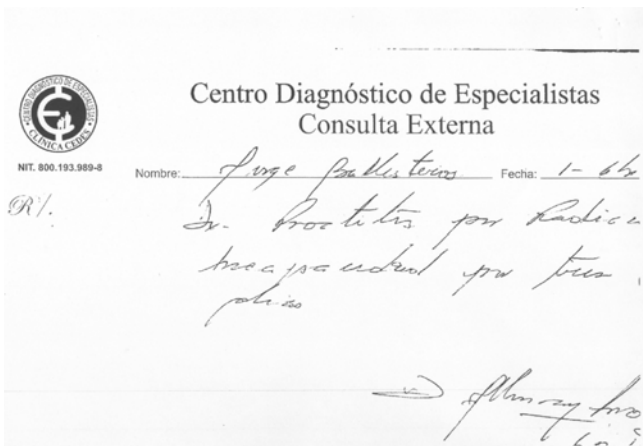 CENTRO DIAGNÓSTICO DE ESPECIALISTAS
CLINICA CEDES
NIT. 800.193.989-8
Centro Diagnóstico de Especialistas
Consulta Externa
Nombre: Jorge Ballesteros Fecha: 1-
R/.
Proctitis por Radica
Incapacidad por tres
dias